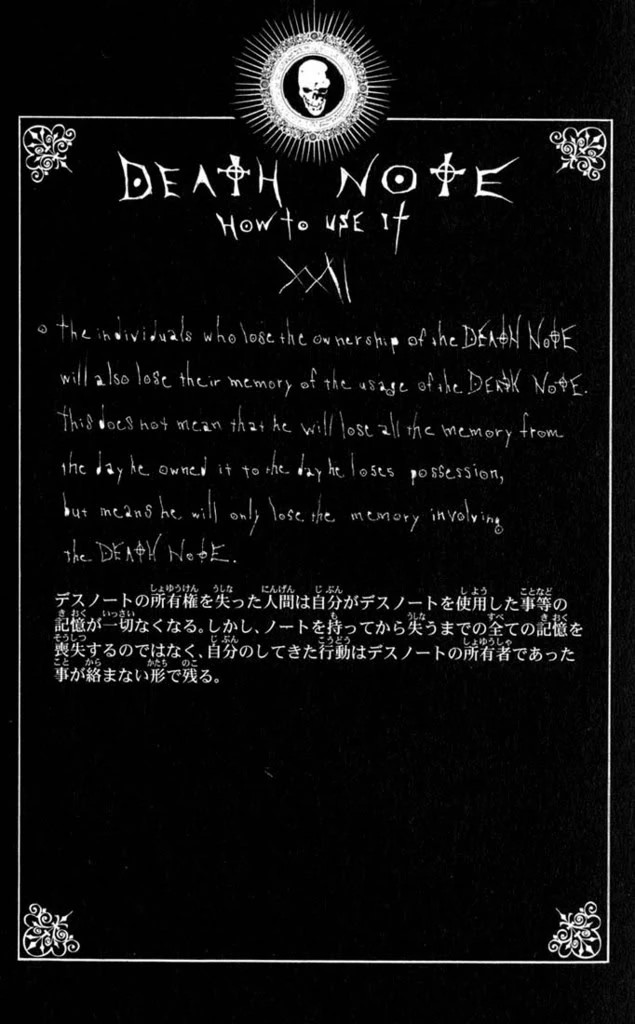 DEATH NOTE
HOW to USE It
XXII
○ The individuals who lose the ownership of the DEATH NOTE
will also lose their memory of the usage of the DEATH NOTE.
This does not mean that he will lose all the memory from
the day he owned it to the day he loses possession,
but means he will only lose the memory involving
the DEATH NOTE.
デスノートの所有権を失った人間は自分がデスノートを使用した事等の
記憶が一切なくなる。しかし、ノートを持ってから失うまでの全ての記憶を
喪失するのではなく、自分のしてきた行動はデスノートの所有者であった
事が絡まない形で残る。